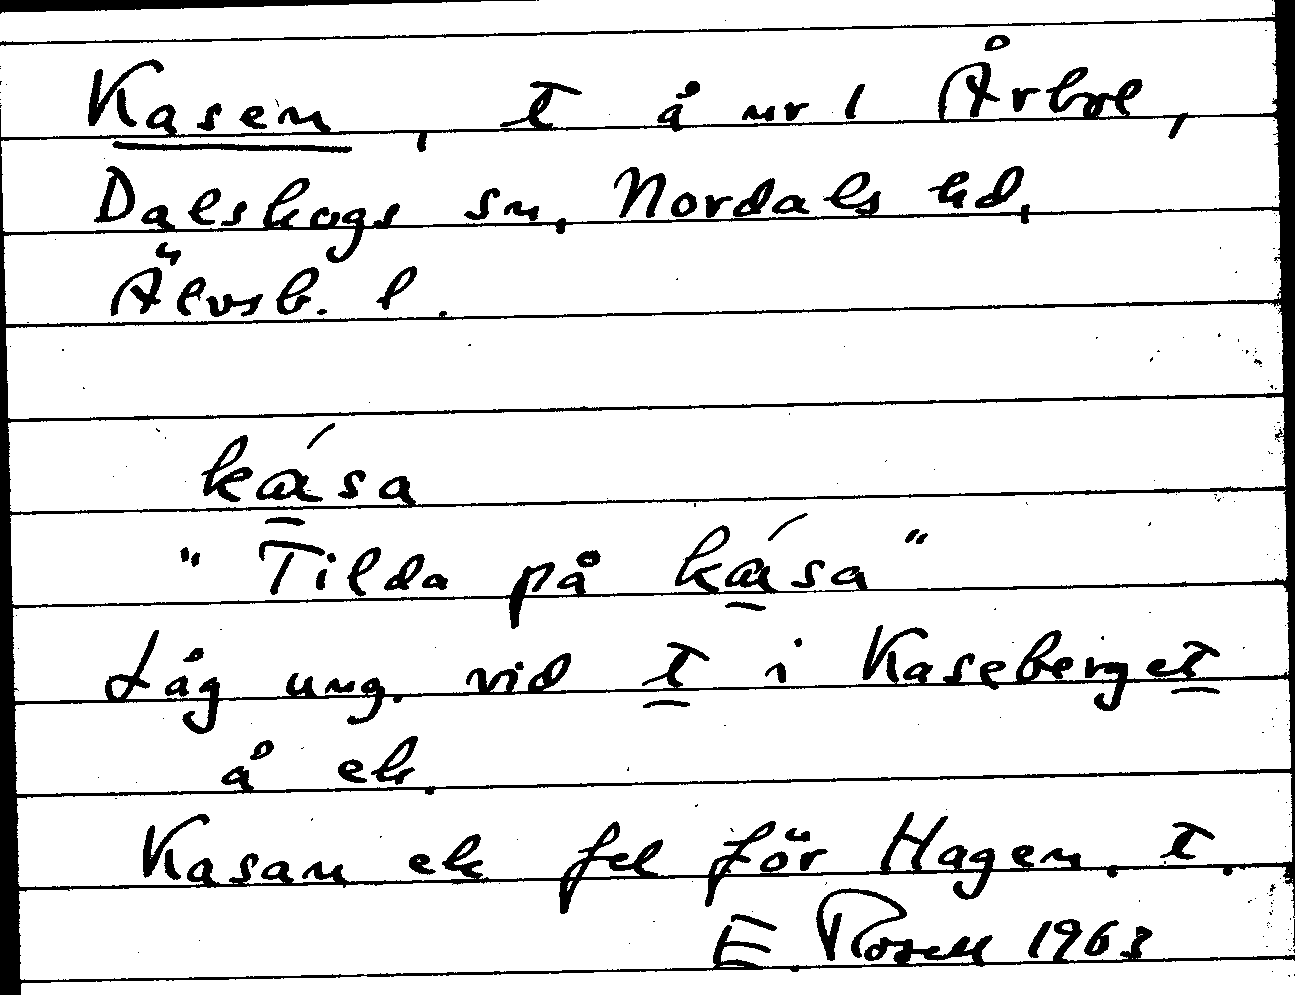 Kasen, t å nr 1 Årbol,
Dalskogs sn, Nordals hd,
Älvsb. l.
kása
"Tilda på kása"
Låg ung. vid t i Kaseberget
å ek.
Kasan ek fel för Hagen. t.
E. Rosell 1963